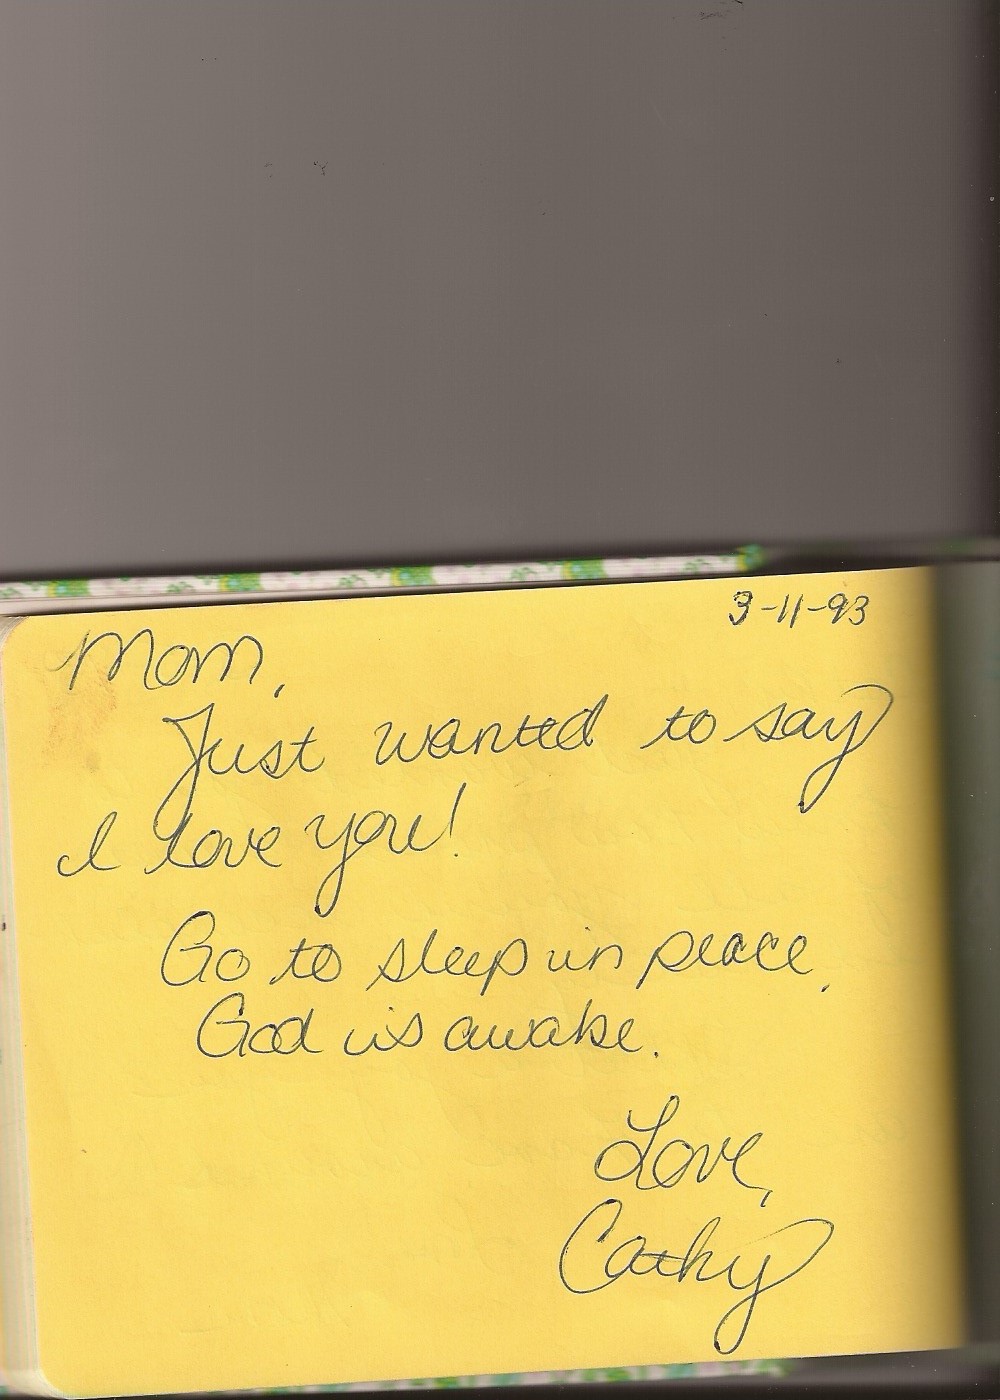 3-11-93
Mom,
Just wanted to say
I love you!
Go to sleep in peace,
God is awake.
Love,
Cathy